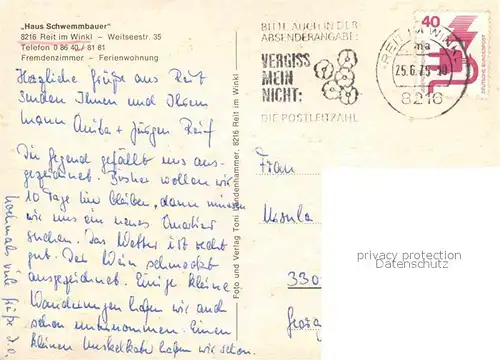 „Haus Schwemmbauer"
8216 Reit im Winkl – Weitseestr. 35
Telefon 0 86 40 / 81 81
Fremdenzimmer – Ferienwohnung
Herzliche Grüße aus Reit
senden Ihnen und Ihrem
Mann Anita + Jürgen
Die Gegend gefällt uns aus-
gezeichnet. Bisher wollen wir
10 Tage hier bleiben, dann müssen
wir uns ein neues Quartier
suchen. Das Wetter ist recht
gut. Der Wein schmeckt
ausgezeichnet. Einige kleine
Wanderungen haben wir auch
schon unternommen. Einen
kleinen Muskelkater haben wir schon.
nochmals viele Grüße d.o.
Foto und Verlag Toni Lindenhammer, 8216 Reit im Winkl
BITTE AUCH IN DER
ABSENDERANGABE:
VERGISS
MEIN
NICHT:
DIE POSTLEITZAHL
REIT IM WINKL
25.6.75
8216
40
DEUTSCHE BUNDESPOST
Frau
Ursula
330
Georg
privacy protection
Datenschutz